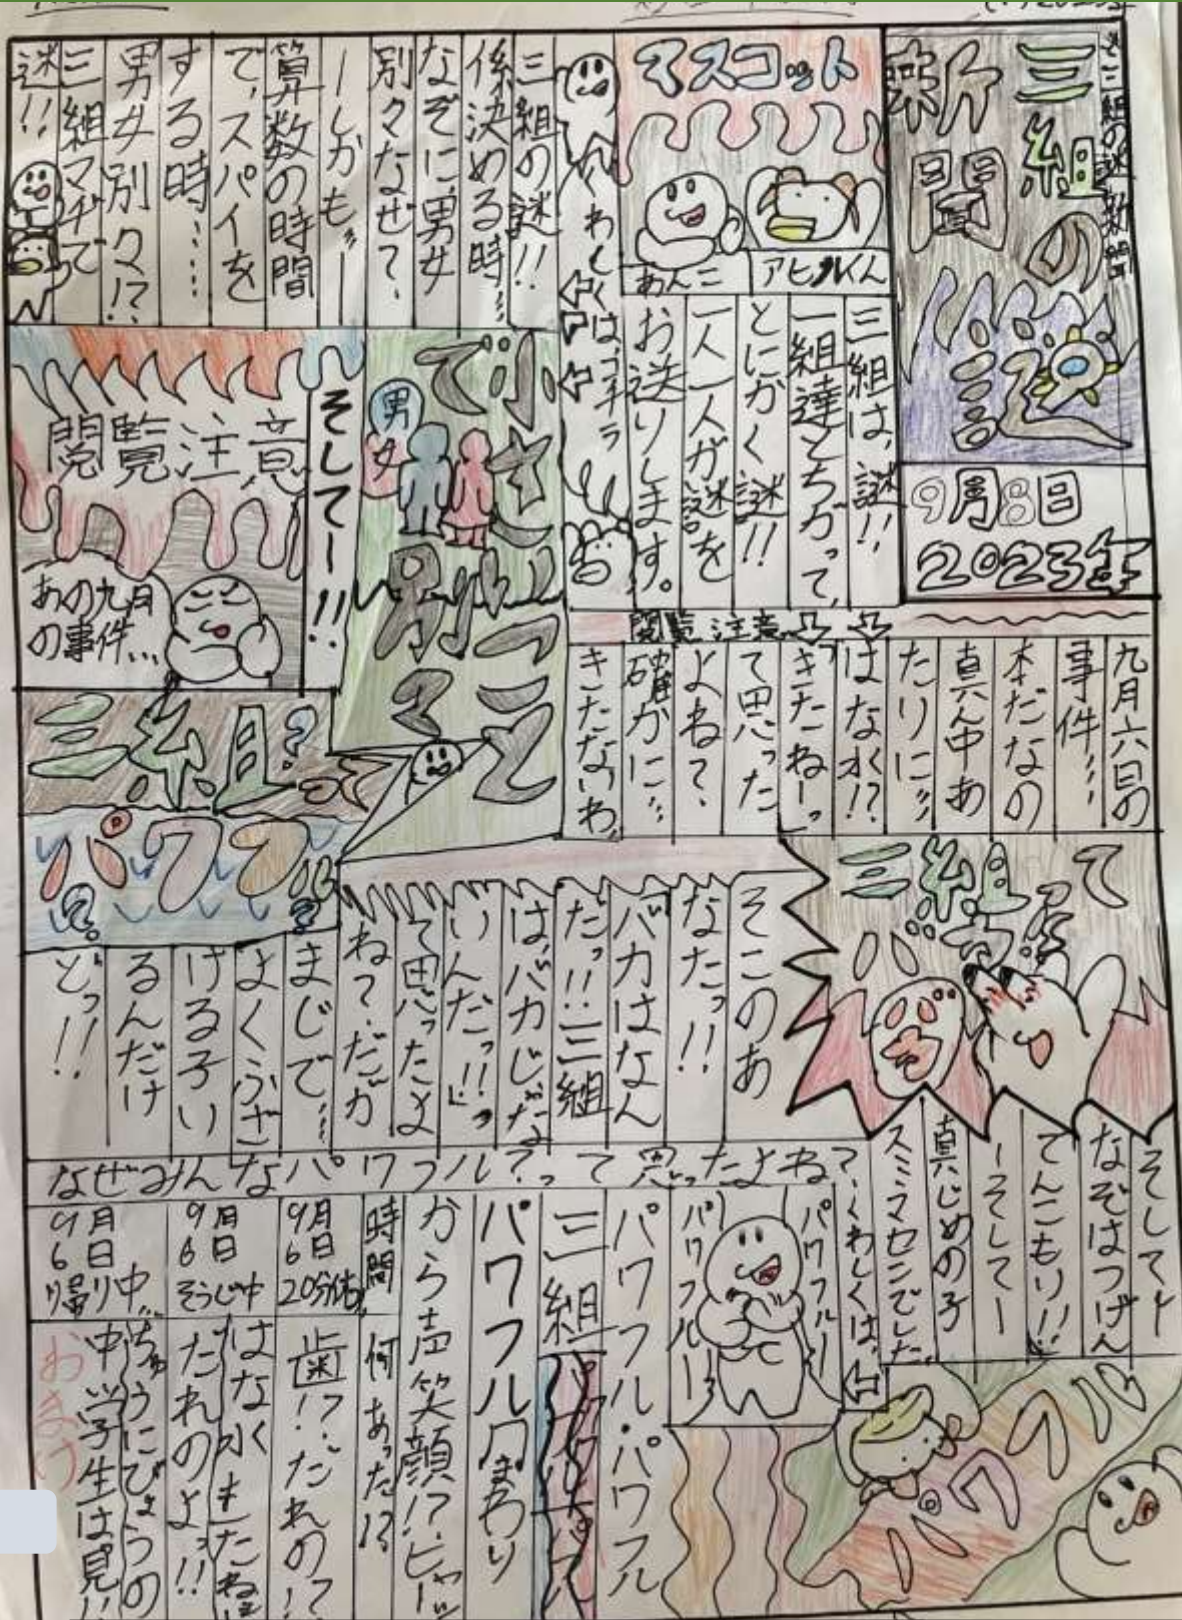 三組の謎新聞
三組の
謎
新聞
9月8日
2023年
マスコット
アヒルくん
あんこ
三組は、謎!!
一組達とちがって、
とにかく謎!!
一人一人が謎を
お送りします。
くわしくは
コチラ
三組の謎!!
係決める時…
なぞに、男女
別々なぜ?、
ーしかも〟ー
算数の時間
で、スパイを
する時……
男女別々!?
三組マヂで
謎!!
男
女
そしてー!!
閲覧注意
あの九月
の事件…
閲覧注意
九月六日の
事件…
本だなの
真ん中あ
たりに〟
はな水!?
きたねーっ
て思った
よね?、
確かに〟
きたないわ。
三組って
パワフル
??
三組って
バカ?
そこのあ
なたっ!!
バカはなん
だっ!!三組
は、バカじゃな
いんだっ!!」っ
て思ったよ
ね?だが
まじで…
よくふざ
ける子い
るんだけ
どっ!!
そしてー
なぞはつげん
てんこもり!!
ーそしてー
真じめの子
スミマセンでした。
なぜみんなパワフル?って思ったよね?
くわしくは、
パワフルー
パワフルー
パワフル
パワフル・パワフル
三組
パワフル
パワフル
からま
笑顔!?
時間
何あった!?
9月
6日
20分休
歯!?だれの!?
9月
6日
そうじ中
はなく水
たれのよっ!!
9月
6日
帰り中…
ちゅうにびょうの
中学生は見!!
おまけ